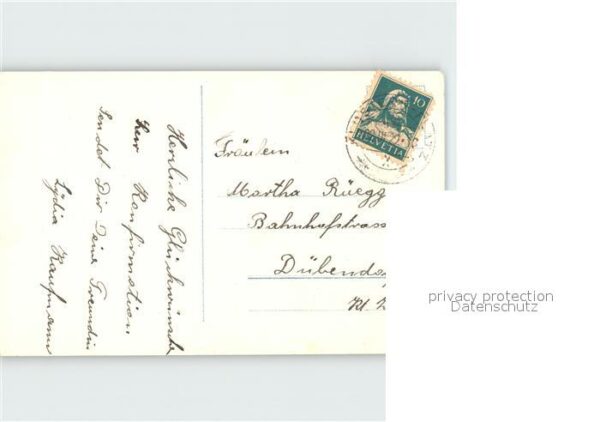 Herzliche Glückwünsche
zur Konfirmation
sendet Dir Deine Freundin
Lydia Kaufmann
10
HELVETIA
Fräulein
Martha Rüegg
Bahnhofstrass
Dübendo
Kt.
privacy protection
Datenschutz